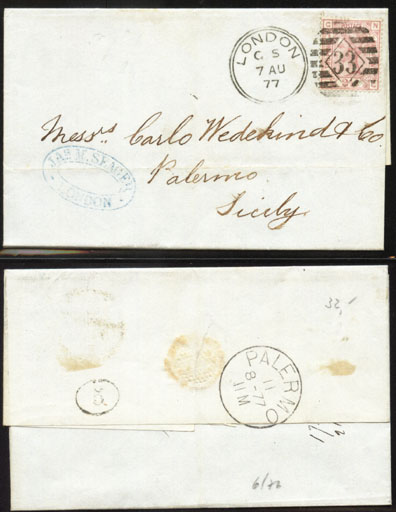 LONDON
C S
7 AU
77
33
Messrs Carlo Wedekind & Co
Palermo
Sicily
JAS M. SEAGER
LONDON
32,-
PALERMO
11
8-77
11 M
8
6/72